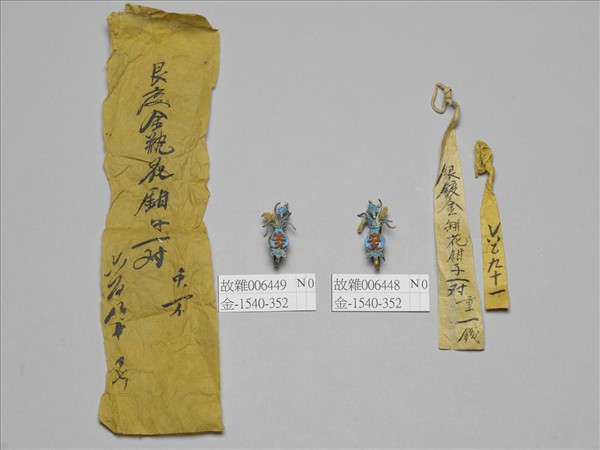 艮度金瓶花鉗子一对
故雜006449
N0
金-1540-352
故雜006448
N0
金-1540-352
銀鍍金瓶花鉗子一对
重一錢
九十一